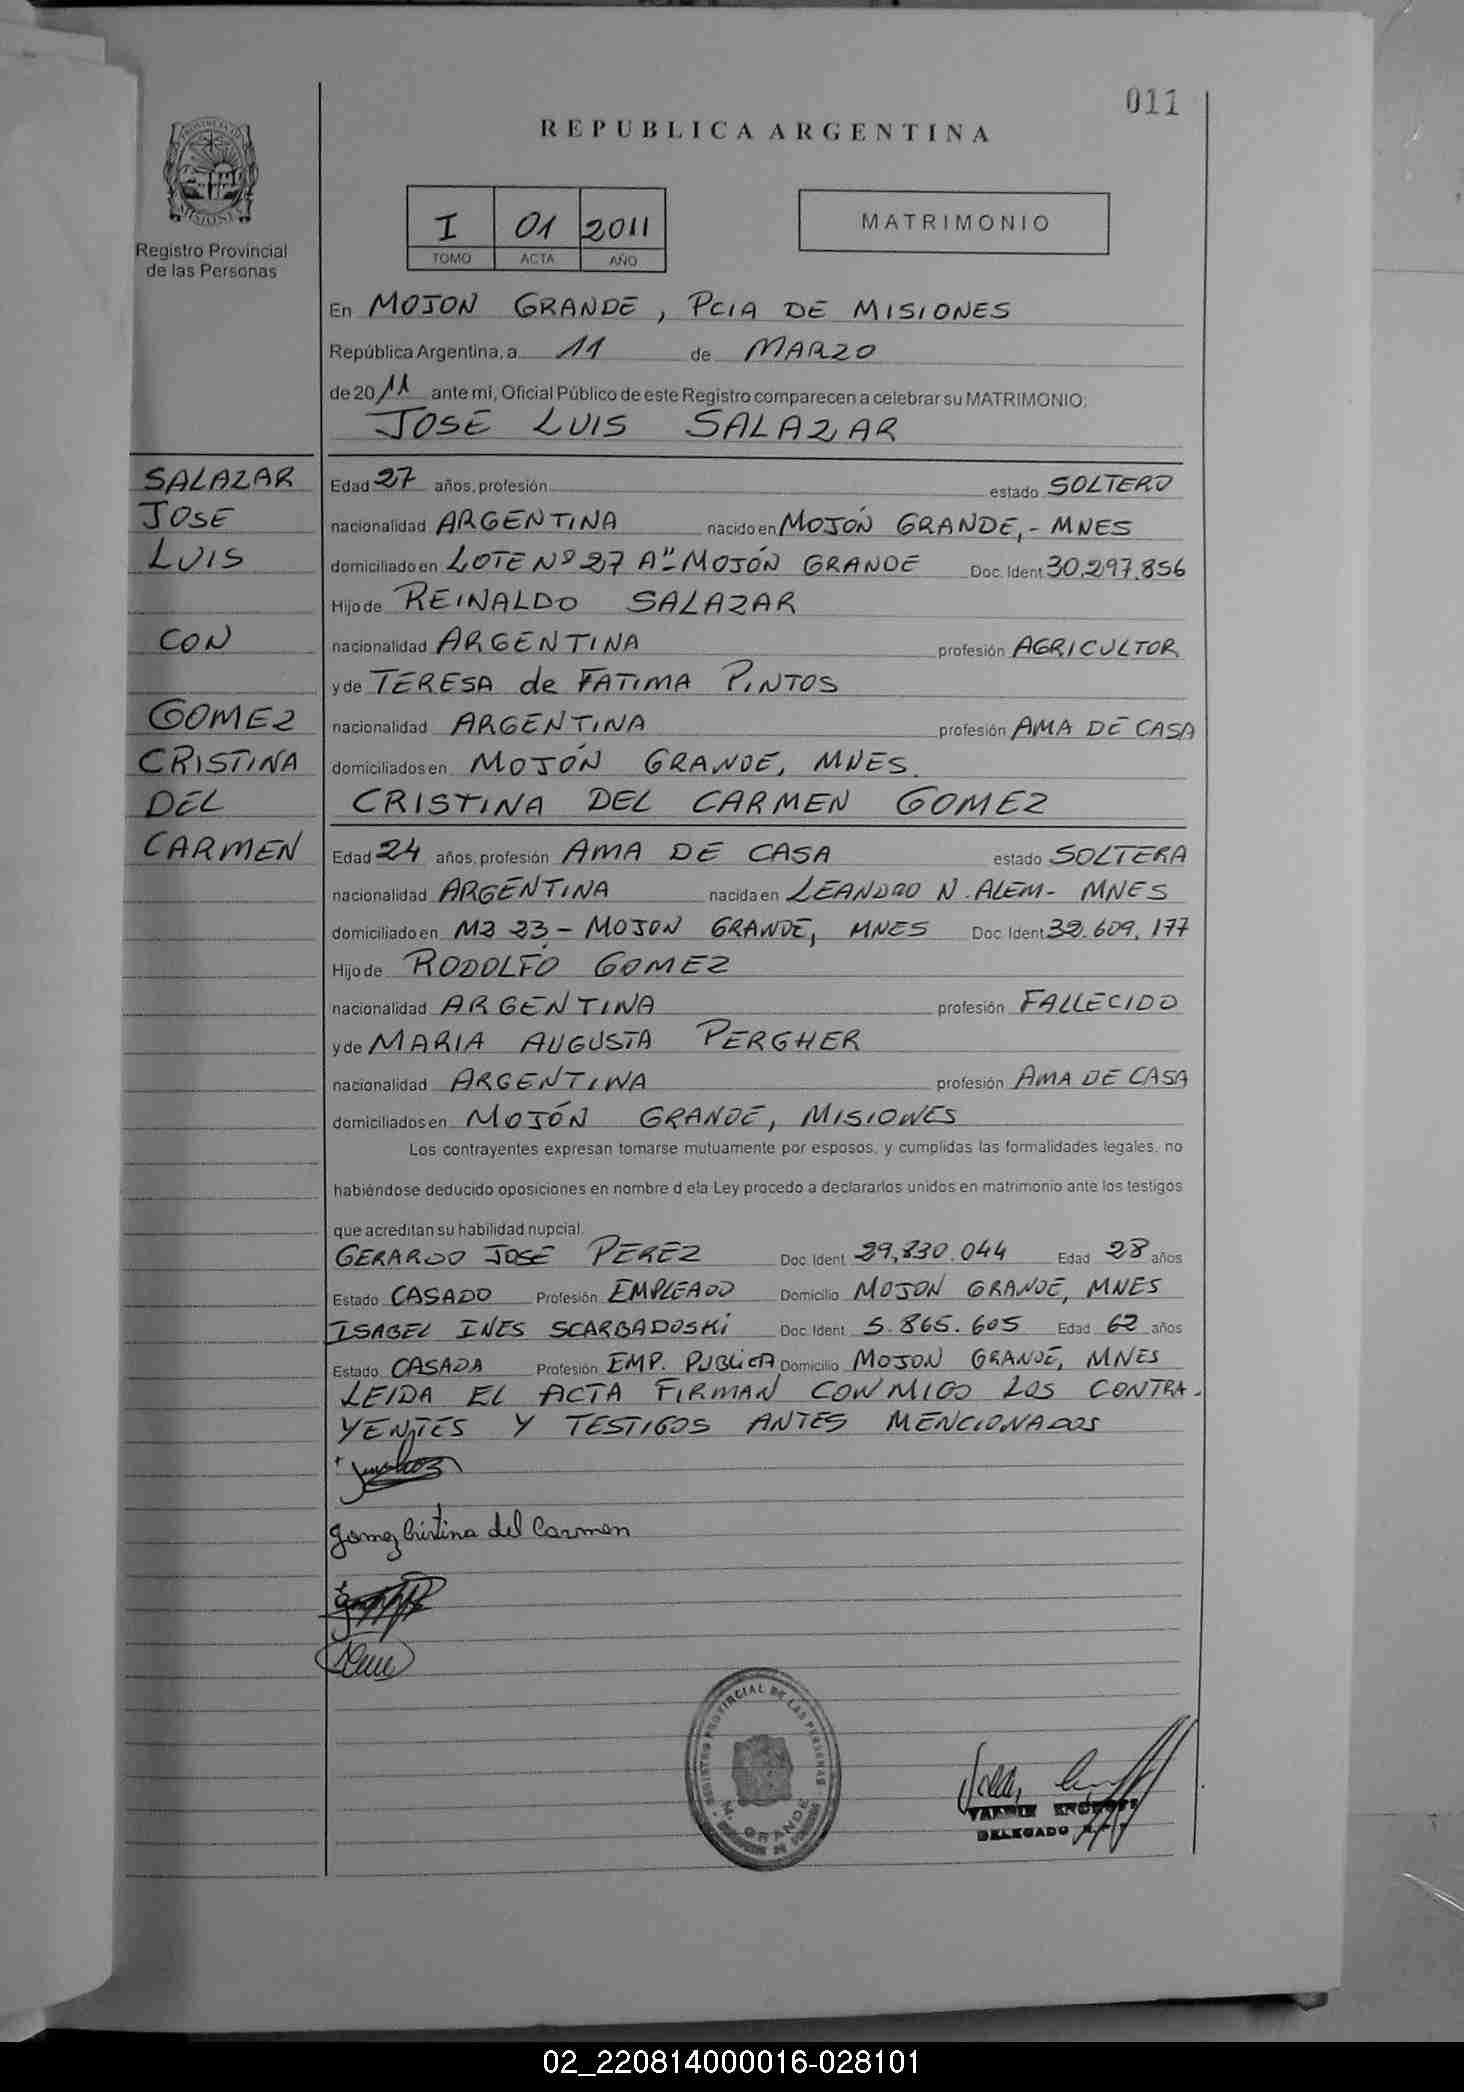 011
REPUBLICA ARGENTINA
PROVINCIA DE MISIONES
Registro Provincial
de las Personas
I 01 2011
TOMO ACTA AÑO
MATRIMONIO
En MOJON GRANDE, PCIA DE MISIONES
República Argentina, a 11 de MARZO
de 2011 ante mi, Oficial Público de este Registro comparecen a celebrar su MATRIMONIO:
JOSE LUIS SALAZAR
SALAZAR
JOSE
LUIS
CON
GOMEZ
CRISTINA
DEL
CARMEN
Edad 27 años, profesión estado SOLTERO
nacionalidad ARGENTINA nacido en MOJÓN GRANDE,- MNES
domiciliado en LOTE Nº 27 A" MOJÓN GRANDE Doc. Ident 30.297.856
Hijo de REINALDO SALAZAR
nacionalidad ARGENTINA profesión AGRICULTOR
y de TERESA de FATIMA PINTOS
nacionalidad ARGENTINA profesión AMA DE CASA
domiciliados en MOJÓN GRANDE, MNES.
CRISTINA DEL CARMEN GOMEZ
Edad 24 años, profesión AMA DE CASA estado SOLTERA
nacionalidad ARGENTINA nacida en LEANDRO N. ALEM- MNES
domiciliado en MZ 23 - MOJON GRANDE, MNES Doc. Ident 32.609.177
Hijo de RODOLFO GOMEZ
nacionalidad ARGENTINA profesión FALLECIDO
y de MARIA AUGUSTA PERGHER
nacionalidad ARGENTINA profesión AMA DE CASA
domiciliados en MOJÓN GRANDE, MISIONES
Los contrayentes expresan tomarse mutuamente por esposos, y cumplidas las formalidades legales, no
habiéndose deducido oposiciones en nombre d ela Ley procedo a declararlos unidos en matrimonio ante los testigos
que acreditan su habilidad nupcial.
GERARDO JOSE PEREZ Doc. Ident 29.830.044 Edad 28 años
Estado CASADO Profesión EMPLEADO Domicilio MOJON GRANDE, MNES
ISABEL INES SCARBADOSKI Doc. Ident 5.865.605 Edad 62 años
Estado CASADA Profesión EMP. PUBLICA Domicilio MOJON GRANDE, MNES
LEIDA EL ACTA FIRMAN CONMIGO LOS CONTRA-
YENTES Y TESTIGOS ANTES MENCIONADOS
gomez Cristina del Carmen
REGISTRO PROVINCIAL DE LAS PERSONAS
M. GRANDE
DELEGADO
02_220814000016-028101